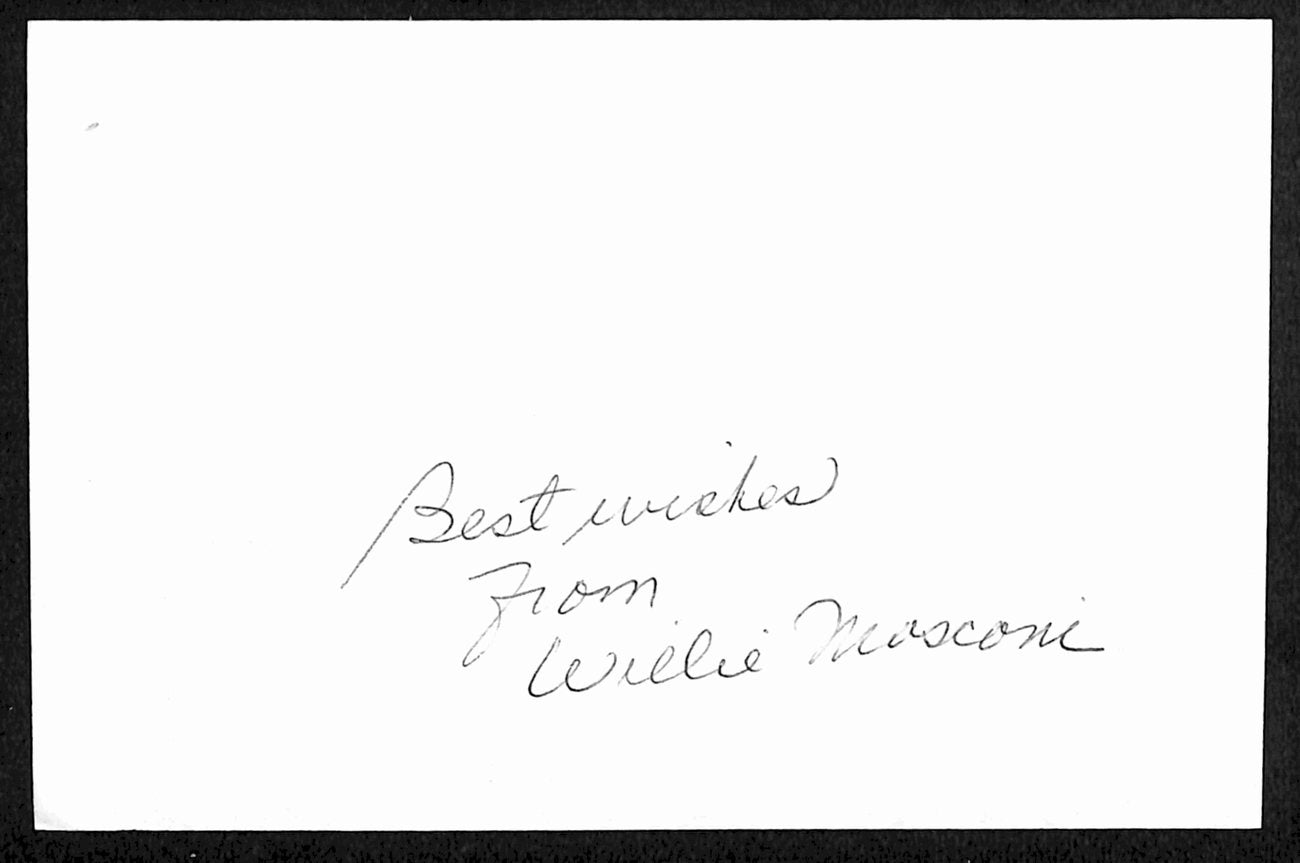 Best wishes
from
Willie Mosconi